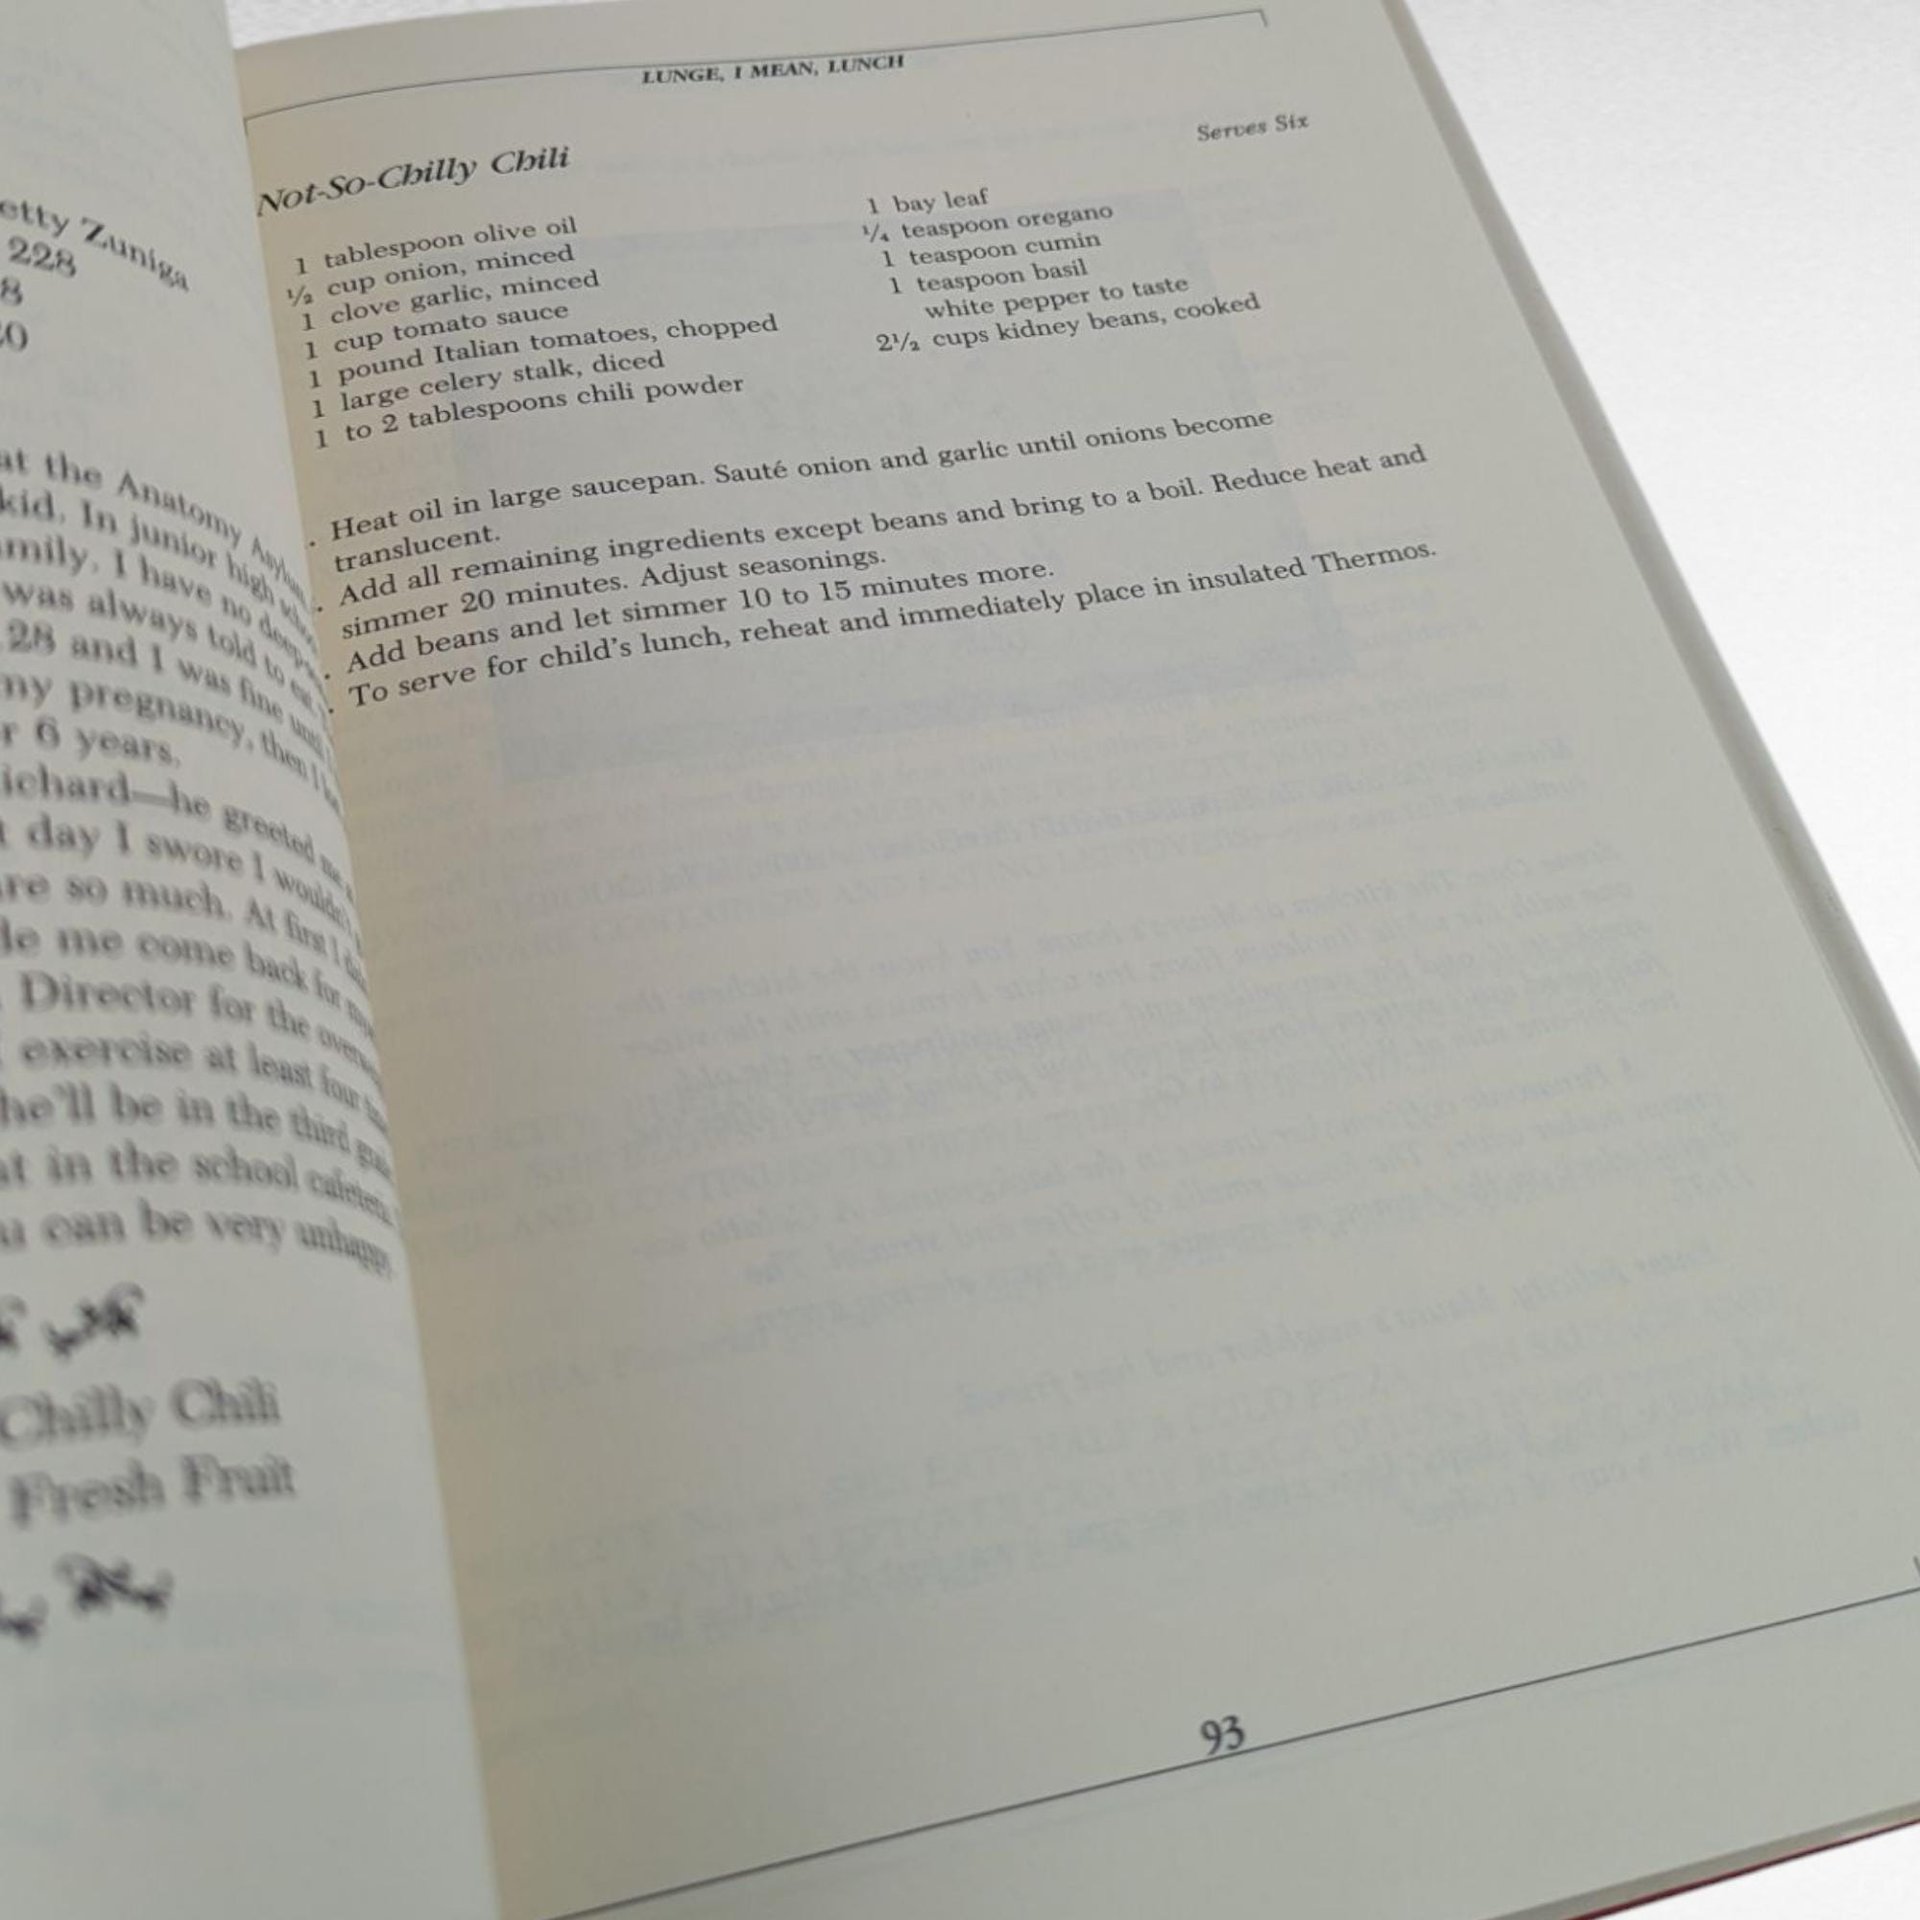 etty Zuniga
228
8
0
at the Anatomy
kid. In junior high
mily, I have no
was always told to eat
28 and I was fine until
my pregnancy, then I
r 6 years.
ichard—he greeted me
t day I swore I wouldn't
re so much. At first I
de me come back for
Director for the
exercise at least four
he'll be in the third
at in the school
u can be very unhappy.
Chilly Chili
Fresh Fruit
LUNGE, I MEAN, LUNCH
Not-So-Chilly Chili
Serves Six
1 tablespoon olive oil
½ cup onion, minced
1 clove garlic, minced
1 cup tomato sauce
1 pound Italian tomatoes, chopped
1 large celery stalk, diced
1 to 2 tablespoons chili powder
1 bay leaf
¼ teaspoon oregano
1 teaspoon cumin
1 teaspoon basil
white pepper to taste
2½ cups kidney beans, cooked
. Heat oil in large saucepan. Sauté onion and garlic until onions become
translucent.
. Add all remaining ingredients except beans and bring to a boil. Reduce heat and
simmer 20 minutes. Adjust seasonings.
. Add beans and let simmer 10 to 15 minutes more.
. To serve for child's lunch, reheat and immediately place in insulated Thermos.
93